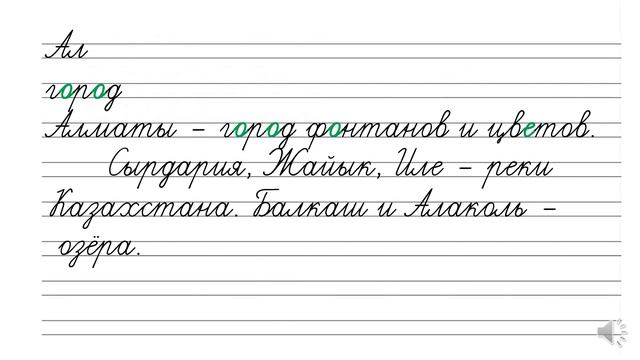 Ал
город
Алматы – город фонтанов и цветов.
Сырдария, Жайык, Иле – реки
Казахстана. Балкаш и Алаколь –
озёра.